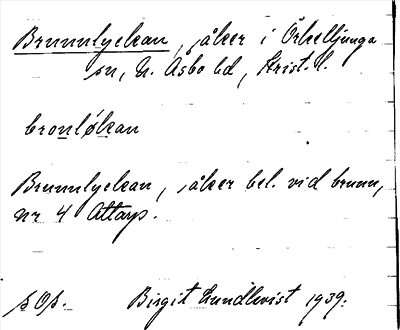 Brunnlyckan, åker i Örkelljunga
sn, N. Åsbo hd, Krist. l.
bronløkan
Brunnlyckan, åker bel. vid brunn,
nr 4 Altarp.
s Os. Birgit Lundkvist 1939.